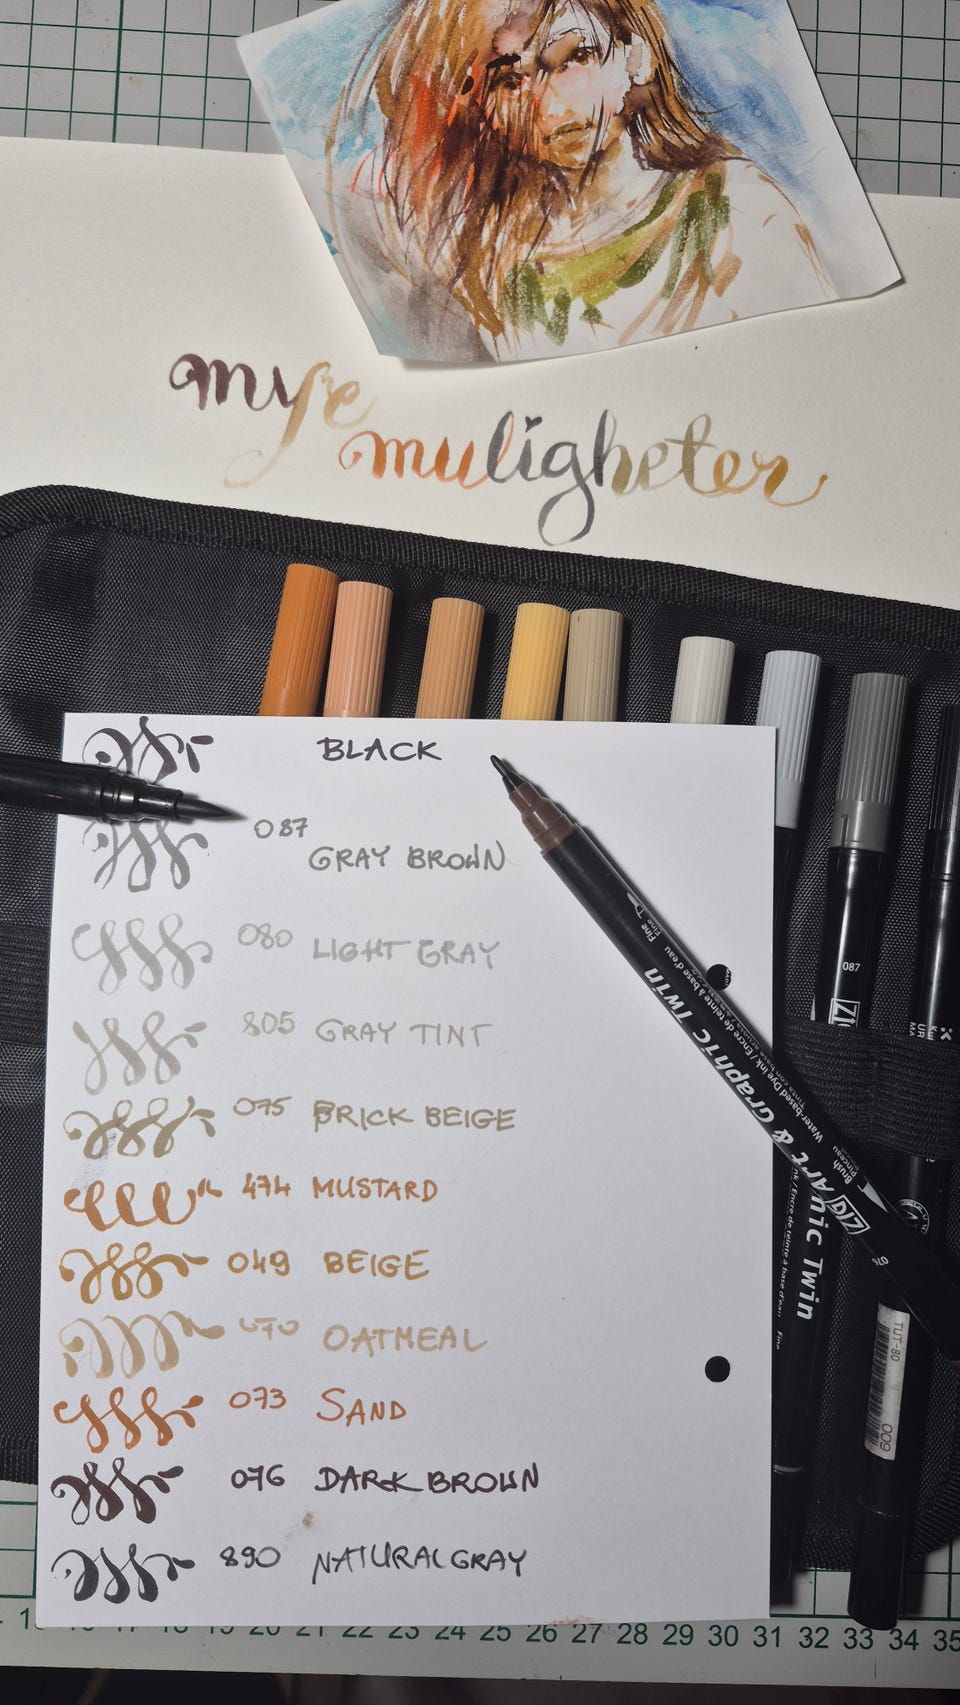 mye
muligheter
BLACK
087
GRAY BROWN
080 LIGHT GRAY
805 GRAY TINT
075 BRICK BEIGE
474 MUSTARD
049 BEIGE
070 OATMEAL
073 SAND
076 DARK BROWN
890 NATURAL GRAY
Fine
Art & Graphic Twin
Water-based Dye Ink / Encre de teinte à base d'eau
Brush
Pinceau
ZIG
076
087
ZIG
nic Twin
nk / Encre de teinte à base d'eau
Fine
TUT-80
009
17 18 19 20 21 22 23 24 25 26 27 28 29 30 31 32 33 34 35